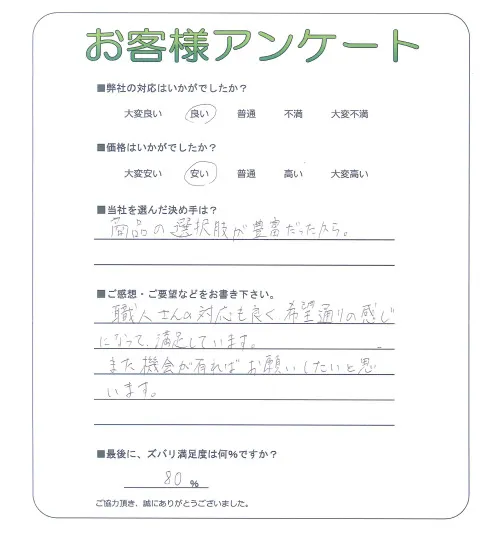 お客様アンケート
■弊社の対応はいかがでしたか？
大変良い 良い 普通 不満 大変不満
■価格はいかがでしたか？
大変安い 安い 普通 高い 大変高い
■当社を選んだ決め手は？
商品の選択肢が豊富だったから。
■ご感想・ご要望などをお書き下さい。
職人さんの対応も良く希望通りの感じ
になって、満足しています。
また機会が有ればお願いしたいと思
います。
■最後に、ズバリ満足度は何%ですか？
80 %
ご協力頂き、誠にありがとうございました。